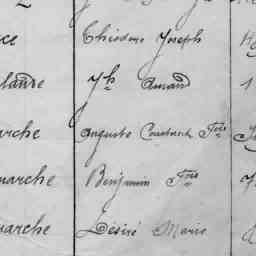 ce Théodore Joseph
lande Jh Amand
arche Auguste Constant Fçois
marche Benjamin Fçois
marche Désiré Marie